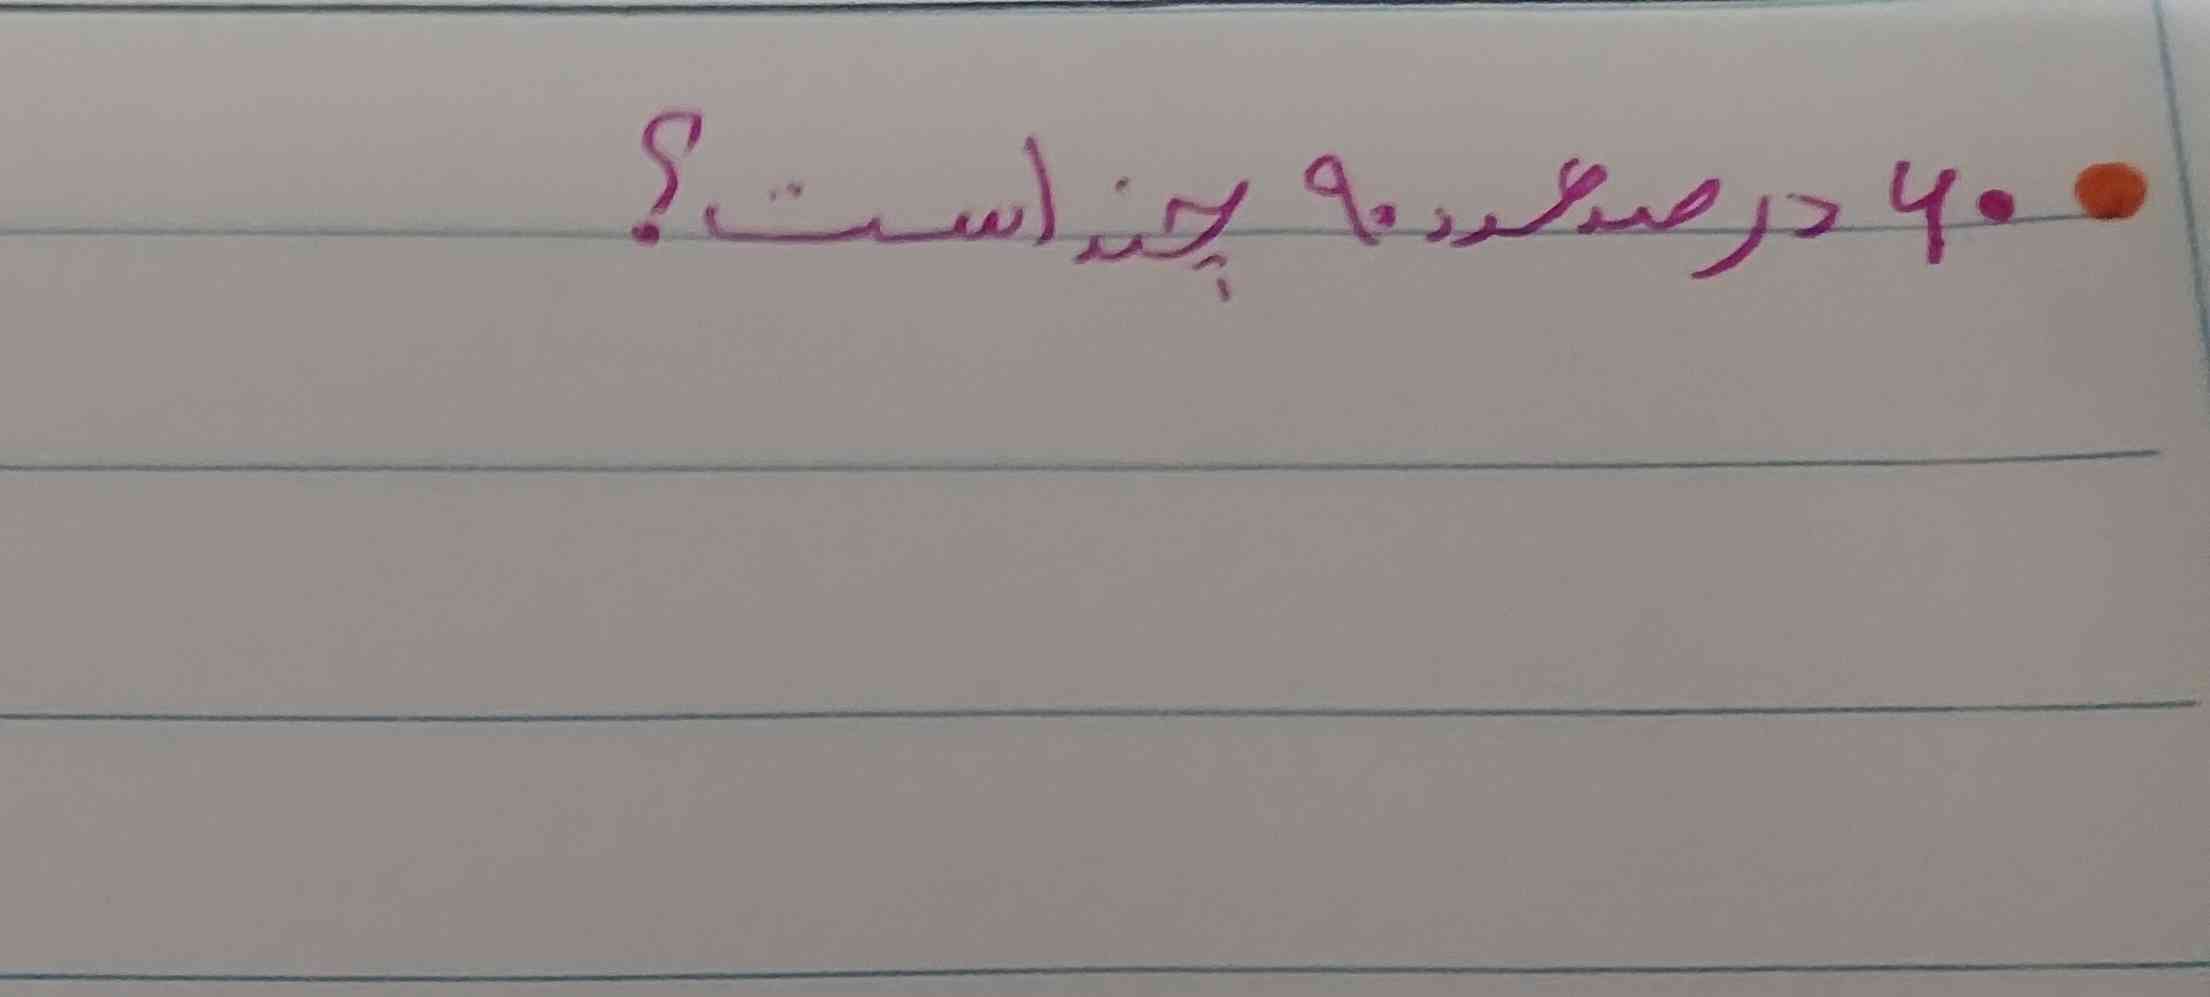 ۶۰ درصد عدد ۹۰ چند است؟